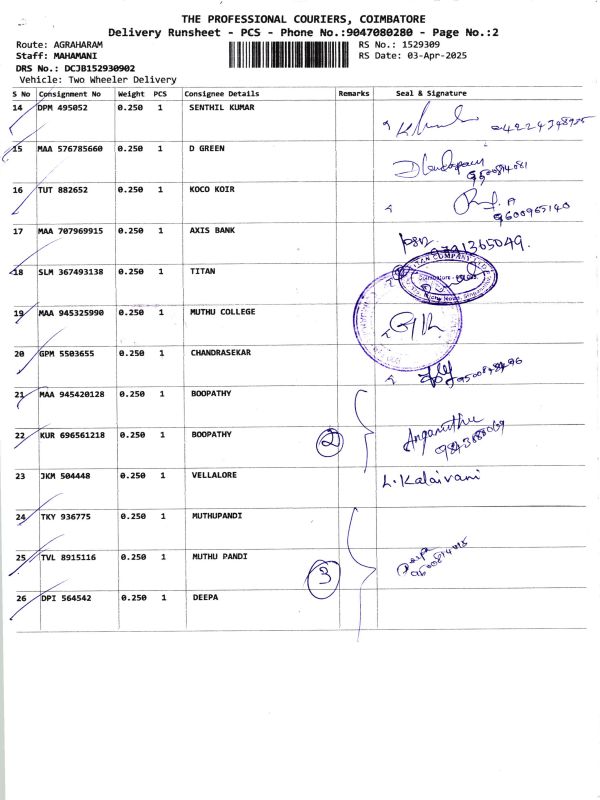 THE PROFESSIONAL COURIERS, COIMBATORE
Delivery Runsheet - PCS - Phone No.:9047080280 - Page No.:2
Route: AGRAHARAM
RS No.: 1529309
Staff: MAHAMANI
RS Date: 03-Apr-2025
DRS No.: DCJB152930902
Vehicle: Two Wheeler Delivery
S No Consignment No Weight PCS Consignee Details Remarks Seal & Signature
14 DPM 495052 0.250 1 SENTHIL KUMAR
15 MAA 576785660 0.250 1 D GREEN
16 TUT 882652 0.250 1 KOCO KOIR 9600965140
17 MAA 707969915 0.250 1 AXIS BANK
18 SLM 367493138 0.250 1 TITAN
19 MAA 945325990 0.250 1 MUTHU COLLEGE
20 GPM 5503655 0.250 1 CHANDRASEKAR
21 MAA 945420128 0.250 1 BOOPATHY
22 KUR 696561218 0.250 1 BOOPATHY 2
23 JKM 504448 0.250 1 VELLALORE L. Kalaivani
24 TKY 936775 0.250 1 MUTHUPANDI
25 TVL 8915116 0.250 1 MUTHU PANDI 3
26 DPI 564542 0.250 1 DEEPA